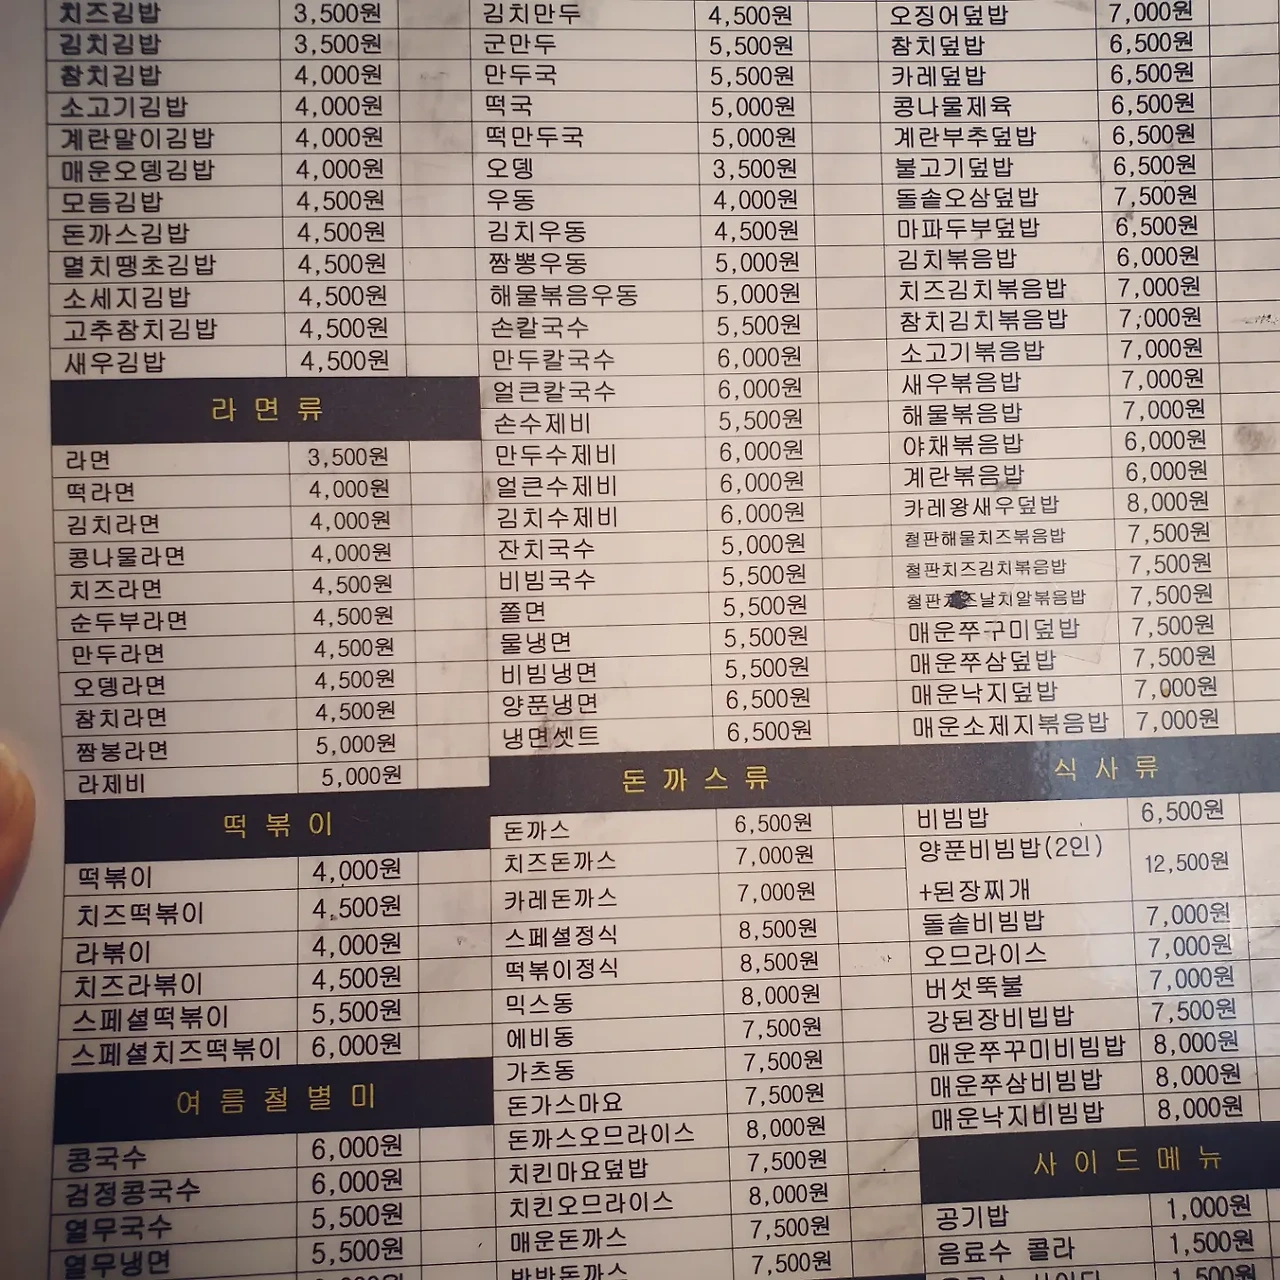 치즈김밥 3,500원
김치김밥 3,500원
참치김밥 4,000원
소고기김밥 4,000원
계란말이김밥 4,000원
매운오뎅김밥 4,000원
모듬김밥 4,500원
돈까스김밥 4,500원
멸치땡초김밥 4,500원
소세지김밥 4,500원
고추참치김밥 4,500원
새우김밥 4,500원
라면류
라면 3,500원
떡라면 4,000원
김치라면 4,000원
콩나물라면 4,000원
치즈라면 4,500원
순두부라면 4,500원
만두라면 4,500원
오뎅라면 4,500원
참치라면 4,500원
짬봉라면 5,000원
라제비 5,000원
떡볶이
떡볶이 4,000원
치즈떡볶이 4,500원
라볶이 4,000원
치즈라볶이 4,500원
스페셜떡볶이 5,500원
스페셜치즈떡볶이 6,000원
여름철별미
콩국수 6,000원
검정콩국수 6,000원
열무국수 5,500원
열무냉면 5,500원
김치만두 4,500원
군만두 5,500원
만두국 5,500원
떡국 5,000원
떡만두국 5,000원
오뎅 3,500원
우동 4,000원
김치우동 4,500원
짬뽕우동 5,000원
해물볶음우동 5,000원
손칼국수 5,500원
만두칼국수 6,000원
얼큰칼국수 6,000원
손수제비 5,500원
만두수제비 6,000원
얼큰수제비 6,000원
김치수제비 6,000원
잔치국수 5,000원
비빔국수 5,500원
쫄면 5,500원
물냉면 5,500원
비빔냉면 5,500원
양푼냉면 6,500원
냉면셋트 6,500원
돈까스류
돈까스 6,500원
치즈돈까스 7,000원
카레돈까스 7,000원
스페셜정식 8,500원
떡볶이정식 8,500원
믹스동 8,000원
에비동 7,500원
가츠동 7,500원
돈가스마요 7,500원
돈까스오므라이스 8,000원
치킨마요덮밥 7,500원
치킨오므라이스 8,000원
매운돈까스 7,500원
반반돈까스 7,500원
오징어덮밥 7,000원
참치덮밥 6,500원
카레덮밥 6,500원
콩나물제육 6,500원
계란부추덮밥 6,500원
불고기덮밥 6,500원
돌솥오삼덮밥 7,500원
마파두부덮밥 6,500원
김치볶음밥 6,000원
치즈김치볶음밥 7,000원
참치김치볶음밥 7,000원
소고기볶음밥 7,000원
새우볶음밥 7,000원
해물볶음밥 7,000원
야채볶음밥 6,000원
계란볶음밥 6,000원
카레왕새우덮밥 8,000원
철판해물치즈볶음밥 7,500원
철판치즈김치볶음밥 7,500원
철판치즈날치알볶음밥 7,500원
매운쭈구미덮밥 7,500원
매운쭈삼덮밥 7,500원
매운낙지덮밥 7,000원
매운소제지볶음밥 7,000원
식사류
비빔밥 6,500원
양푼비빔밥(2인) 12,500원
+된장찌개
돌솥비빔밥 7,000원
오므라이스 7,000원
버섯뚝불 7,000원
강된장비빕밥 7,500원
매운쭈꾸미비빔밥 8,000원
매운쭈삼비빔밥 8,000원
매운낙지비빔밥 8,000원
사이드메뉴
공기밥 1,000원
음료수 콜라 1,500원